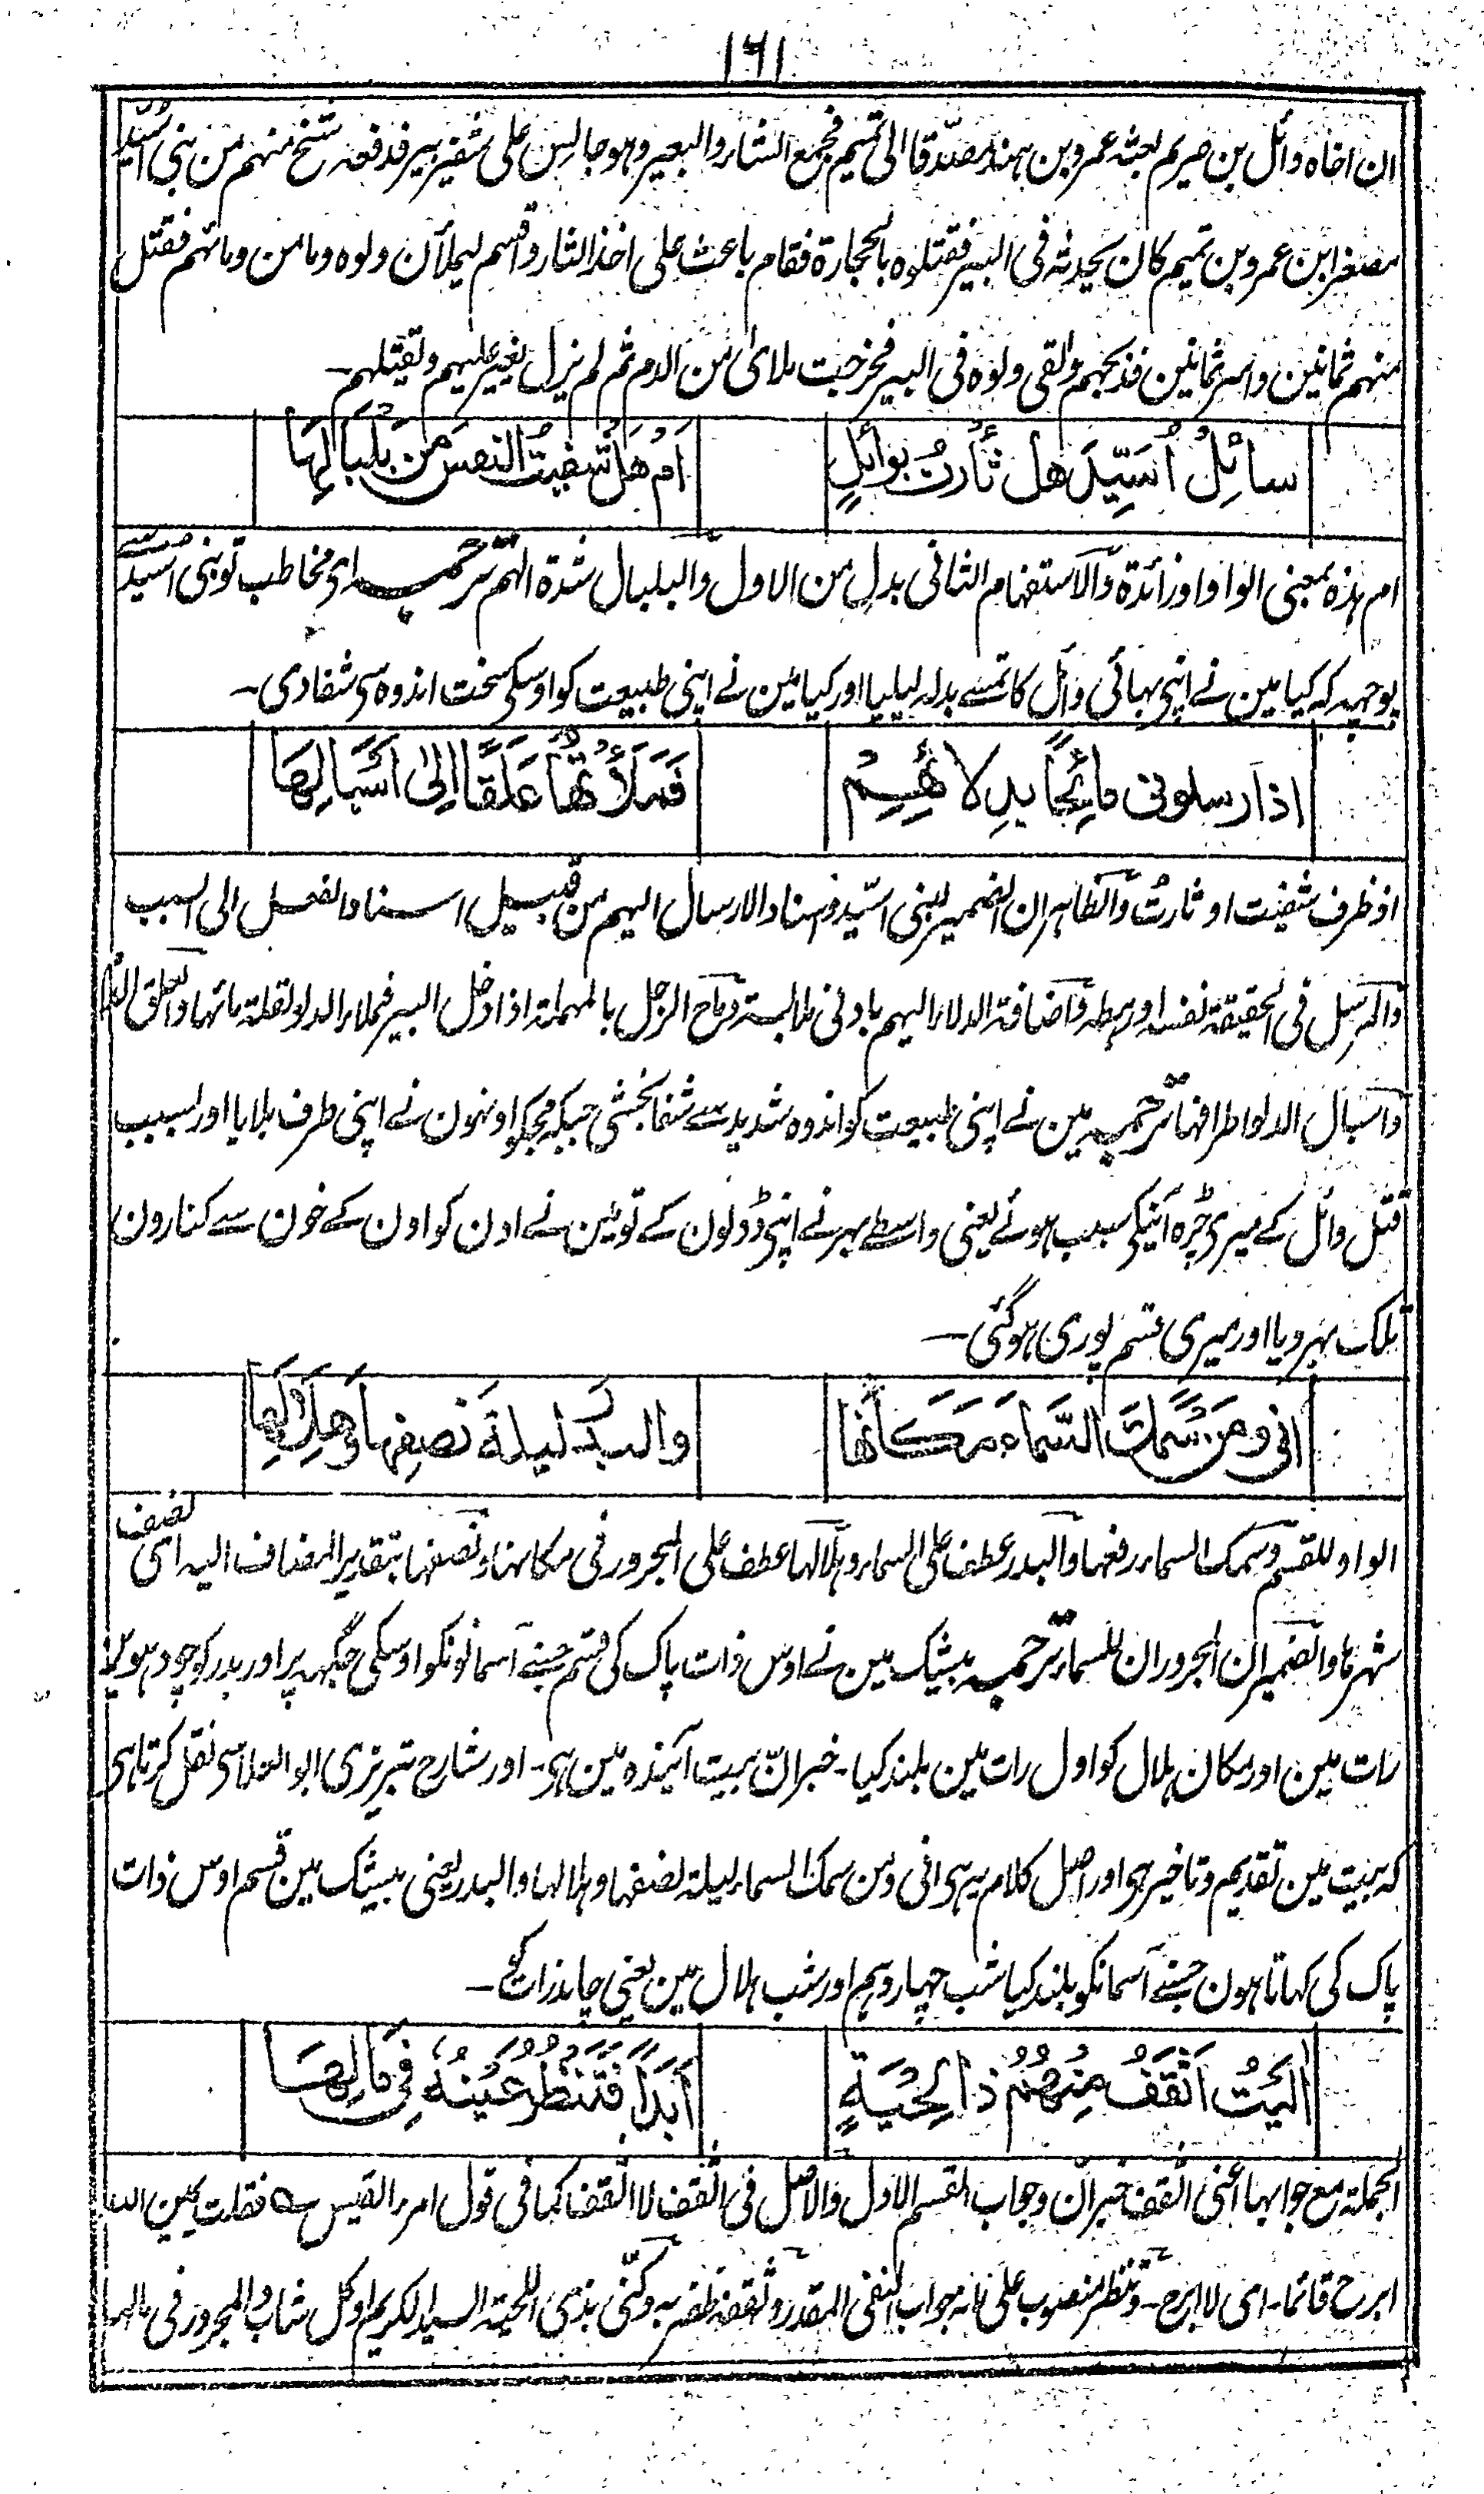 ١٦١
ان اخاہ وائل بن صریم بعثہ عمرو بن ہند مصدّقا الی تمیم فجمع الشاء والبعیر وہو جالس علی شفیر بیر فدفعہ شیخ منہم من بنی اُسَیّد
مصغرا بن عمرو بن تمیم کان یحدثہ فی البیر فقتلوہ بالحجارة فقام باعث علی اخذ الثار واقسم لیملأن ولوہ وما من ومائہم فقتل
منہم ثمانین واسر ثمانین فذبحہم والقی ولوہ فی البیر فخرجت ملای من الدم ثم لم یزل یغیر علیہم ویقتلہم۔
سائِلْ اُسَیِّدَ هل ثَأَرتُ بوائلٍ
اَم هَل شفیتُ النفسَ مِن بَلبالِها
ام ہذہ بمعنی الواو او زائدة والاستفہام الثانی بدل من الاول والبلبال شدة الہم ترجمہ ای مخاطب تو بنی اُسَیّد سے
پوچہہ کہ کیا مین نے اپنی بہائی وائل کا تمسے بدلہ لیلیا اور کیا مین نے اپنی طبیعت کو اوسکی سخت اندوہ سی شفا دی۔
اذ ارسلونی مائِحًا بدِلائِهِم
فَمَلَأتُها عَلَقًا اِلٰی اَسبالِها
اذ ظرف شفیت او ثارتُ والظاہر ان الضمیر لبنی اسیّد واسناد الارسال الیہم من قبیل اسناد الفعل الی السبب
والمرسل فی الحقیقة نفسہ او رہطہ واضافة الدلاء الیہم بادنی ملابسة وماح الرجل بالمہملة اذا دخل البیر فملاء الدلو لقلة مائہا والعلق الدم
واسبال الدلو اطرافہا ترجمہ مین نے اپنی طبیعت کو اندوہ شدید سے شفا بخشی جبکہ مجکو اونہون نے اپنی طرف بلایا اور بسبب
قتل وائل کے میری چڑہ آئیکی سبب ہوئے یعنی واسطے بہرنے اپنی ڈولون کے تو مین نے اون کو اون کے خون سے کنارون
تلک بہر دیا اور میری قسم پوری ہو گئی۔
انی ومَن سَمَكَ السَّماءَ مَكَانَها
والبدرَ لیلةَ نصفِها وهِلالِها
الواو للقسم وسمک السماء رفعہا والبدر عطف علی السماء وہلالہا عطف علی المجرور فی مکانہا ونصفہا بتقدیر المضاف الیہ ای نصف
شہرہا والضمیران المجروران للسماء ترجمہ بیشک مین نے اوس ذات پاک کی قسم جسنے آسمانونکو اوسکی جگہہ پر اور بدر کو چودہوین
رات مین اور مکان ہلال کو اول رات مین بلند کیا۔ خبر انّ بیت آیندہ مین ہی۔ اور شارح تبریزی ابو العلا سی نقل کرتا ہی
کہ بیت مین تقدیم وتاخیر ہی اور اصل کلام یہ ہی انی ومن سمک السماء لیلة نصفہا وہلالہا والبدر یعنی بیشک مین قسم اوس ذات
پاک کی کہاتا ہون جسنے آسمانکو بلند کیا شب چہاردہم اور شب ہلال مین یعنی چاند رات کو۔
آلَیتُ اَثقَفُ مِنهُمُ ذا لِحیَةٍ
اَبَدًا فَتَنظُرَ عَینُهٗ فِی مالِها
الجملة مع جوابہا اعنی اثقف خبر انّ وجواب القسم الاول والاصل فی اثقف لا اثقف کما فی قول امرء القیس ؎ فقلت یمین اللہ
ابرح قائما۔ ای لا ابرح۔ وتنظر منصوب علی انہ جواب النفی المقدر وثقفہ ظفر بہ وکنی بذی اللحیة السید الکریم او کل شاب والمجرور فی مالہا